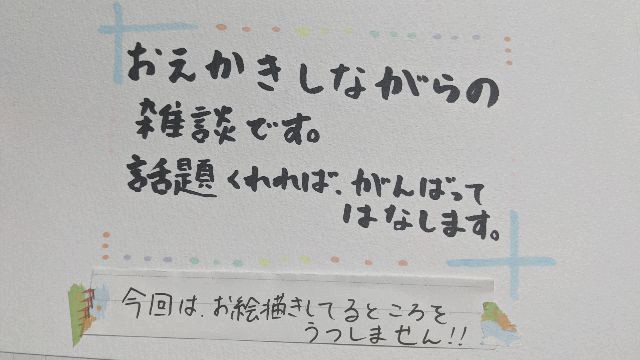 おえかきしながらの
雑談です。
話題くれれば、がんばって
はなします。
今回は、お絵描きしてるところを
うつしません!!